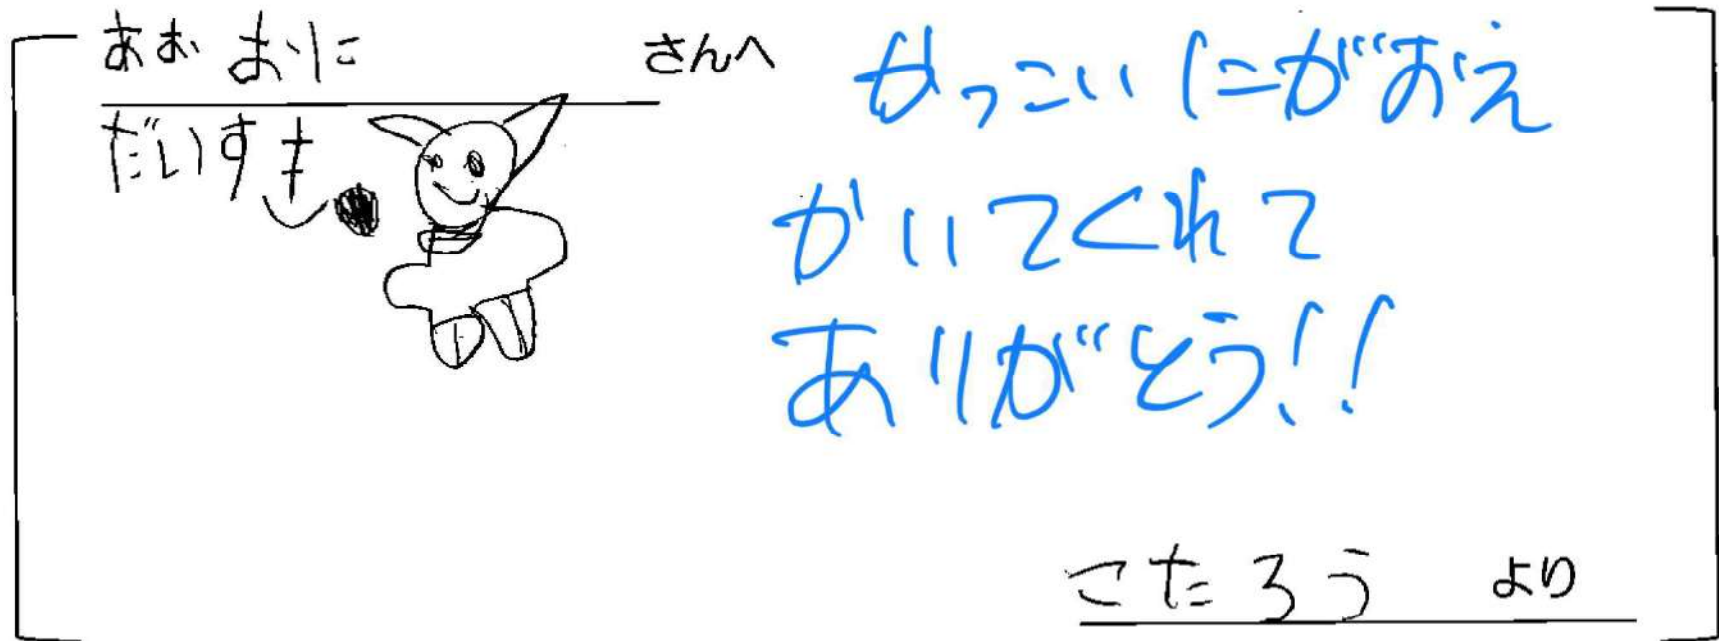 あおおに さんへ
だいすき
かっこいいにがおえ
かいてくれて
ありがとう!!
こたろう より